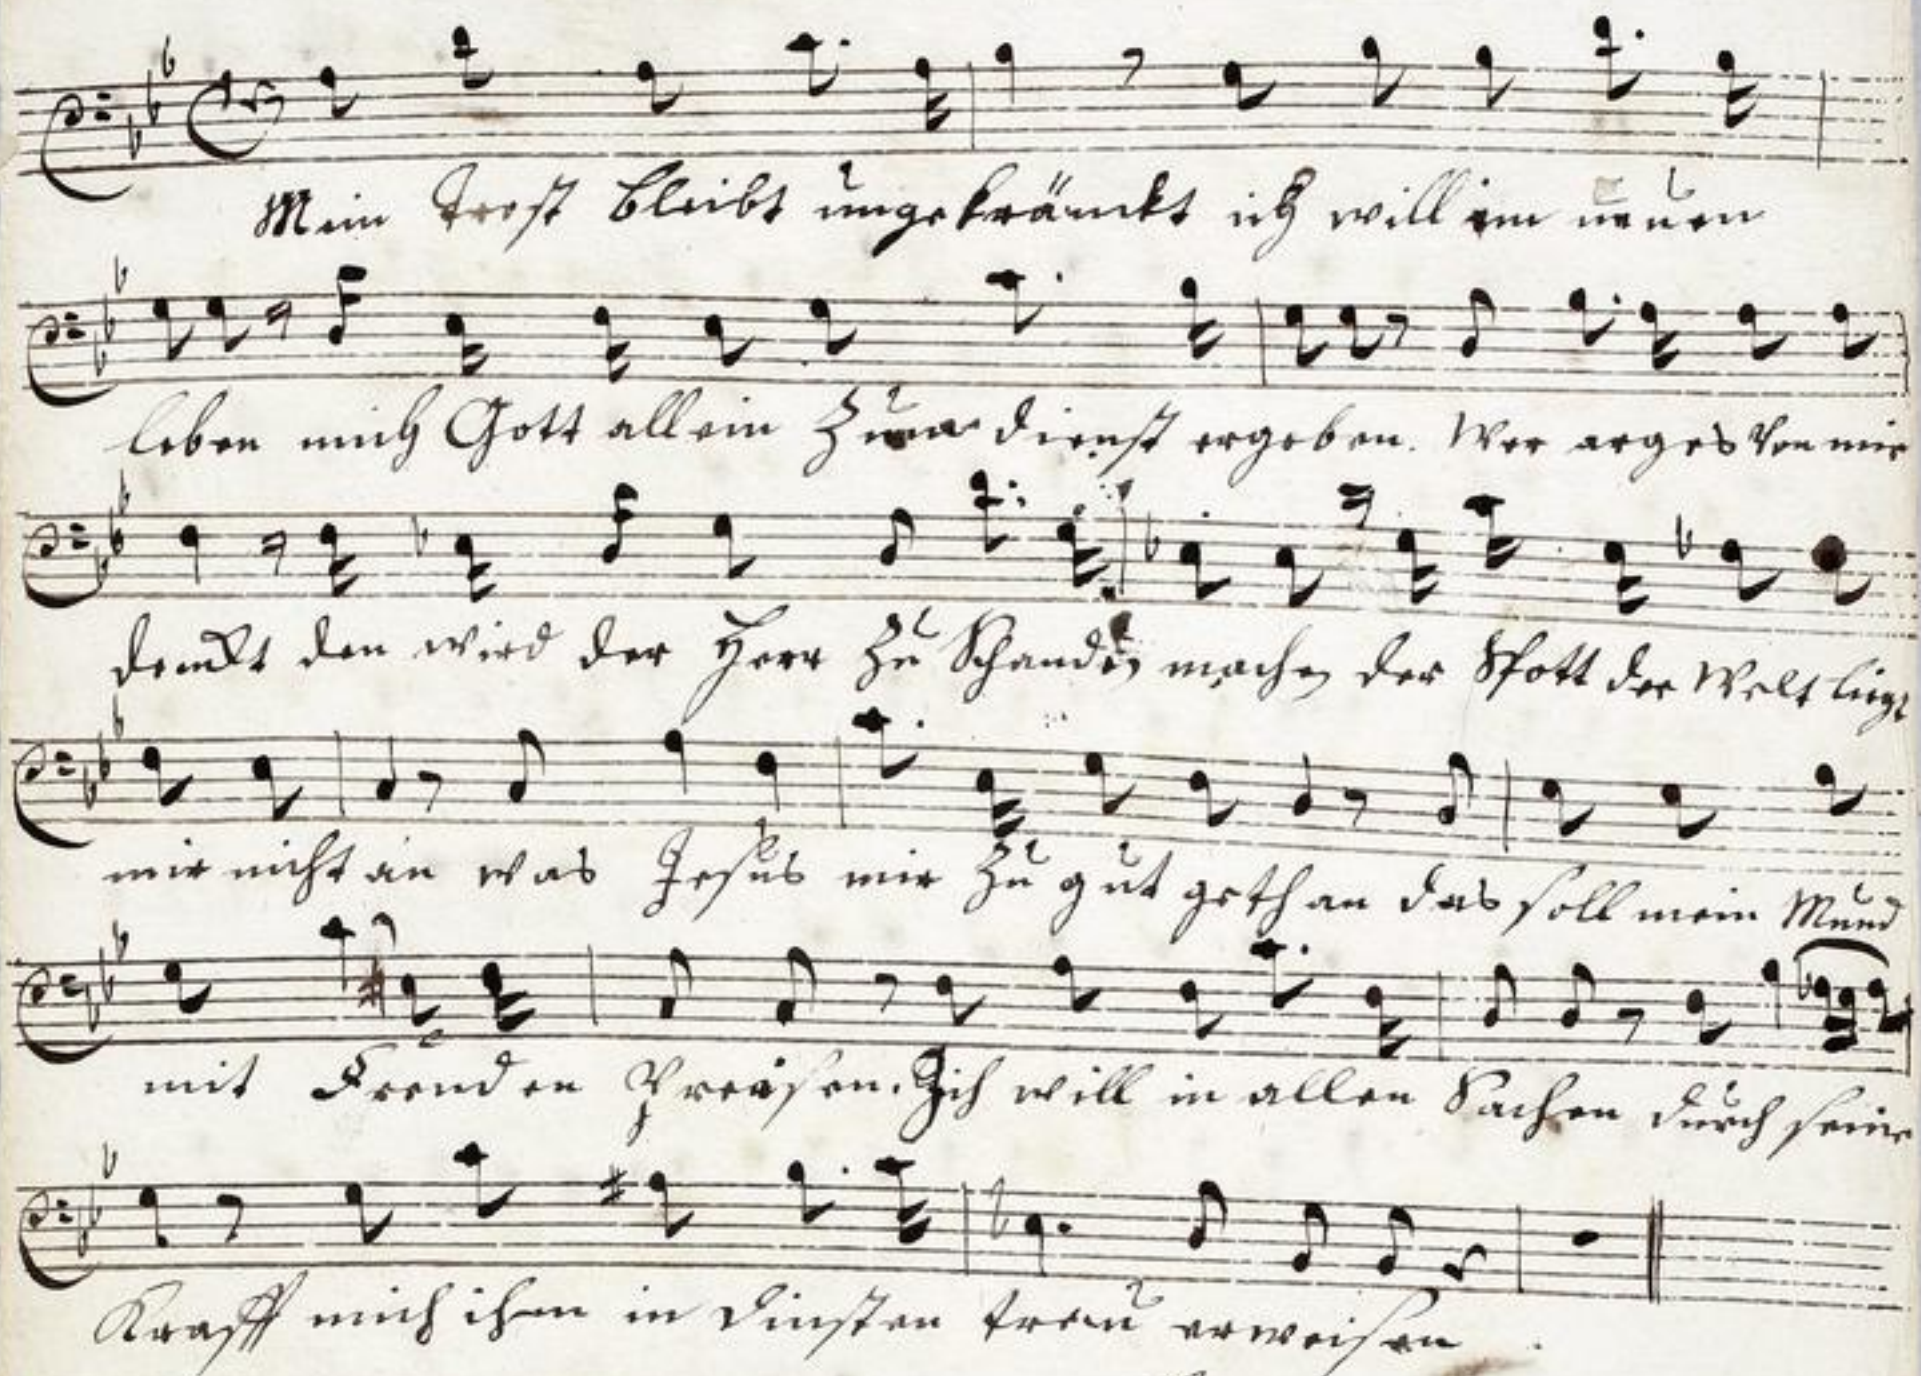 Mein Trost bleibt ungekränckt ich will im neuen
leben mich Gott allein Zum dienst ergeben. Wer arges von mir
denckt den wird der Herr zu Schanden machen der Spott der Welt liegt
mir nicht an was Jesus mir zu gut gethan das soll mein Mund
mit Freuden Preisen. Ich will in allen Sachen durch seine
Krafft mich ihm in dinsten treu erweisen